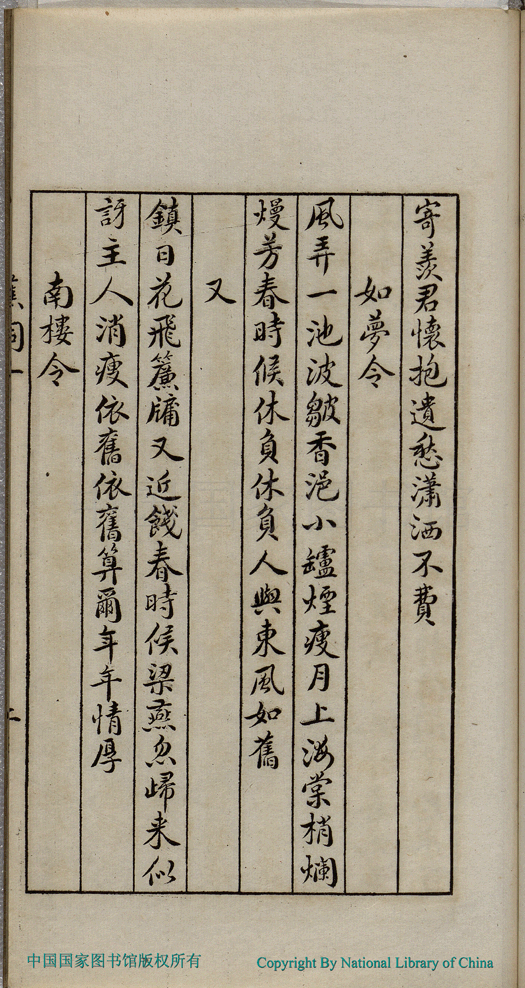 寄羨君懷抱遺愁瀟洒不費
如夢令
風弄一池波皺香浥小罏煙瘦月上海棠梢爛
熳芳春時候休負休負人與東風如舊
又
鎮日花飛簾牖又近餞春時候梁燕忽歸来似
訝主人消瘦依舊依舊算爾年年情厚
南樓令
中国国家图书馆版权所有
Copyright By National Library of China